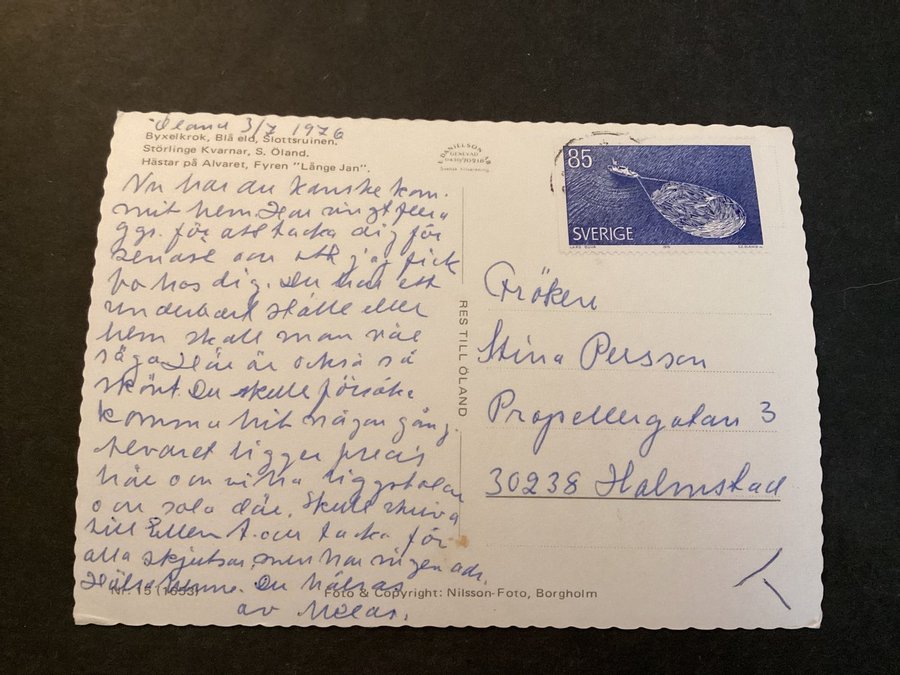 Öland 3/7 1976
Byxelkrok, Blå eld, Slottsruinen.
Störlinge Kvarnar, S. Öland.
Hästar på Alvaret, Fyren "Långe Jan".
Nu har du kanske kom-
mit hem. Har ringt flera
ggr. för att tacka dig för
senast och att jag fick
bo hos dig. Du har ett
underbart ställe eller
hem skall man väl
säga. Här är också så
skönt. Du skulle försöka
komma hit någon gång.
Havet ligger precis
här och vi ha liggstolar
och sola där. Skulle skriva
till Ellen o tacka för
alla skjutsar, men har ingen adr.
Hälsa henne. Du hälsas
av
Nr. 15 (1653)
Foto & Copyright: Nilsson-Foto, Borgholm
RES TILL ÖLAND
E. DANIELLSON AB
GENEVAD
0430/70918
Svensk tillverkning
85
SVERIGE
1975
CZ.SLANIA sc.
Fröken
Stina Persson
Propellergatan 3
30238 Halmstad